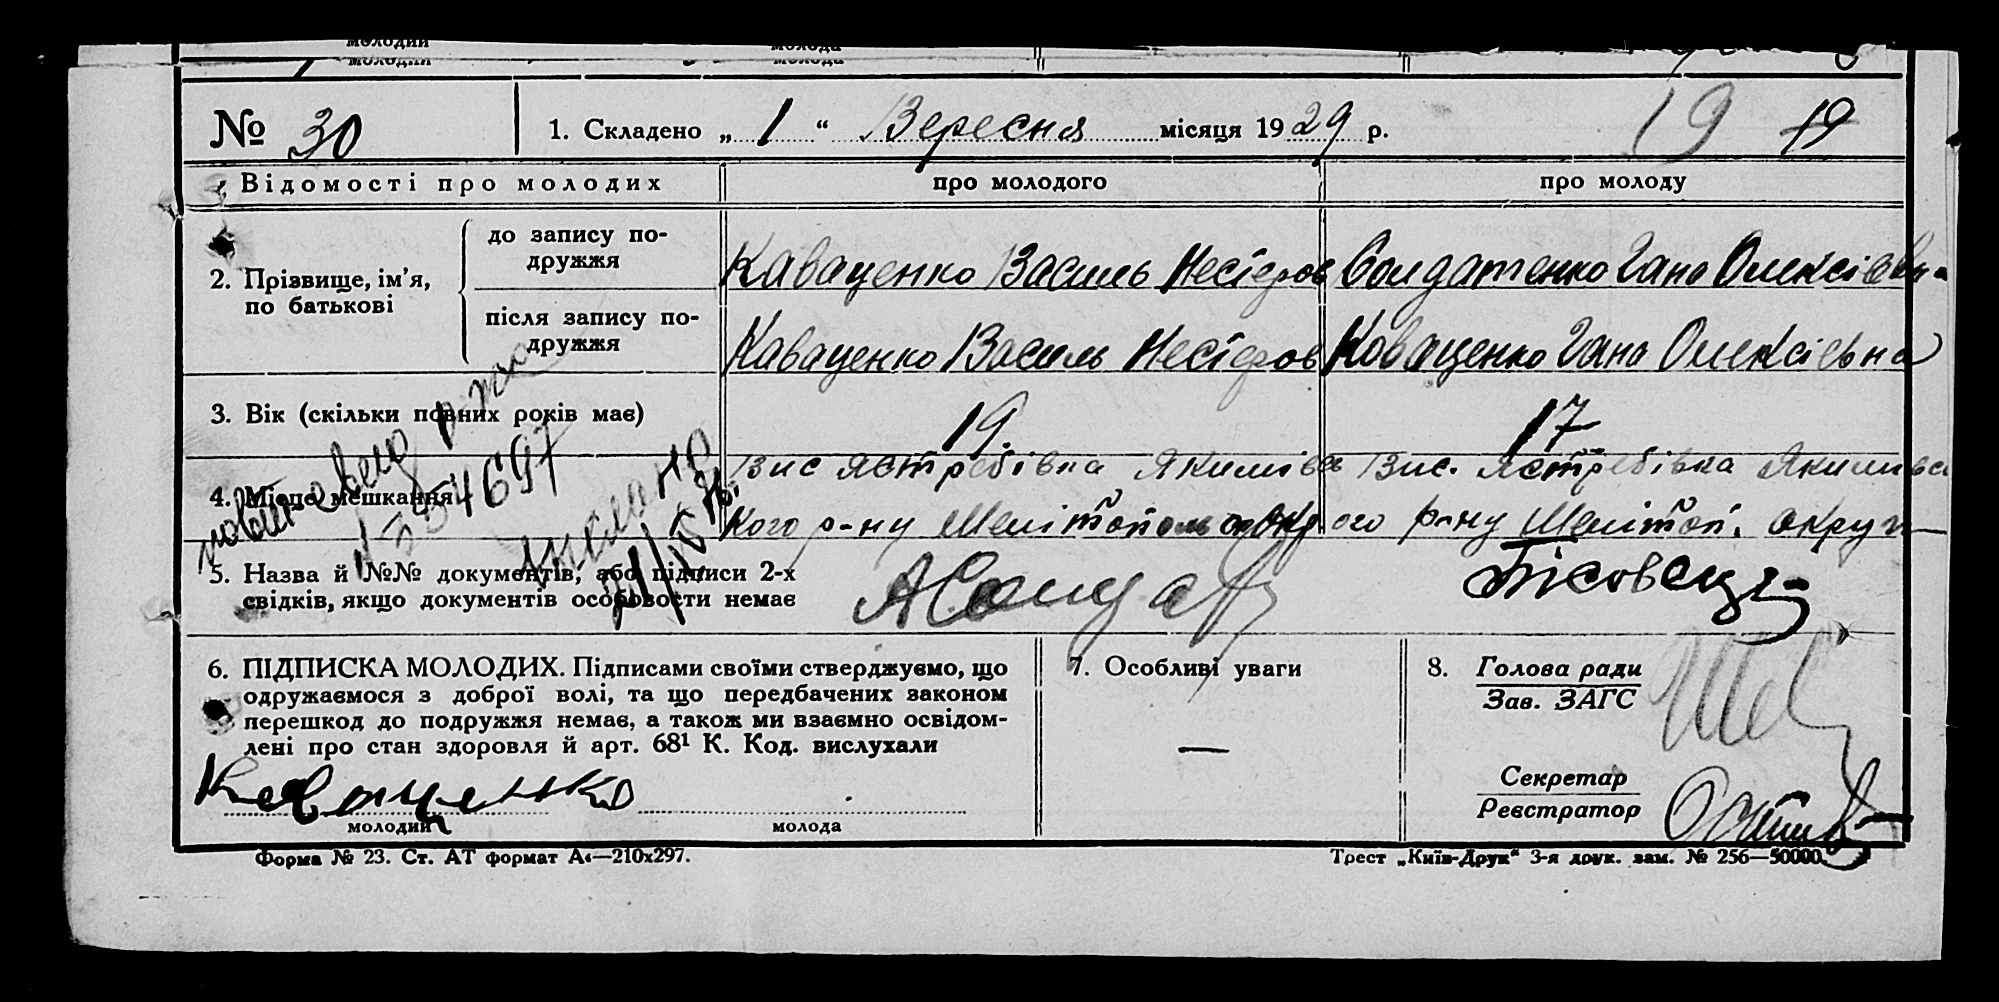 молодий молода
молодий молода
№ 30 1. Складено „ 1 “ Вересня місяця 1929 р. 19 19
Відомості про молодих про молодого про молоду
2. Прізвище, ім’я, по батькові
до запису по-
дружжя
Каваценко Василь Несіеров Солдатенко Гана Олексієвна
після запису по-
дружжя
Каваценко Василь Несіеров Коваценко Гана Олексієвна
3. Вік (скільки повних років має) 19 17
4. Місце мешкання
Вис Ястребівка Якимівсь Вис. Ястребівка Якимівсь
кого р-ну ого р-ну Мелітоп. округ
5. Назва й №№ документів, або підписи 2-х
свідків, якщо документів особовости немає
6. ПІДПИСКА МОЛОДИХ. Підписами своїми стверджуємо, що
одружаємося з доброї волі, та що передбачених законом
перешкод до подружжя немає, а також ми взаємно освідом-
лені про стан здоровля й арт. 68¹ К. Код. вислухали
Каваценко
молодий молода
7. Особливі уваги
—
8. Голова ради
Зав. ЗАГС
Секретар
Реєстратор
Форма № 23. Ст. АТ формат А4—210x297. Трест „Київ-Друк“ 3-я друк. зам. № 256—50000